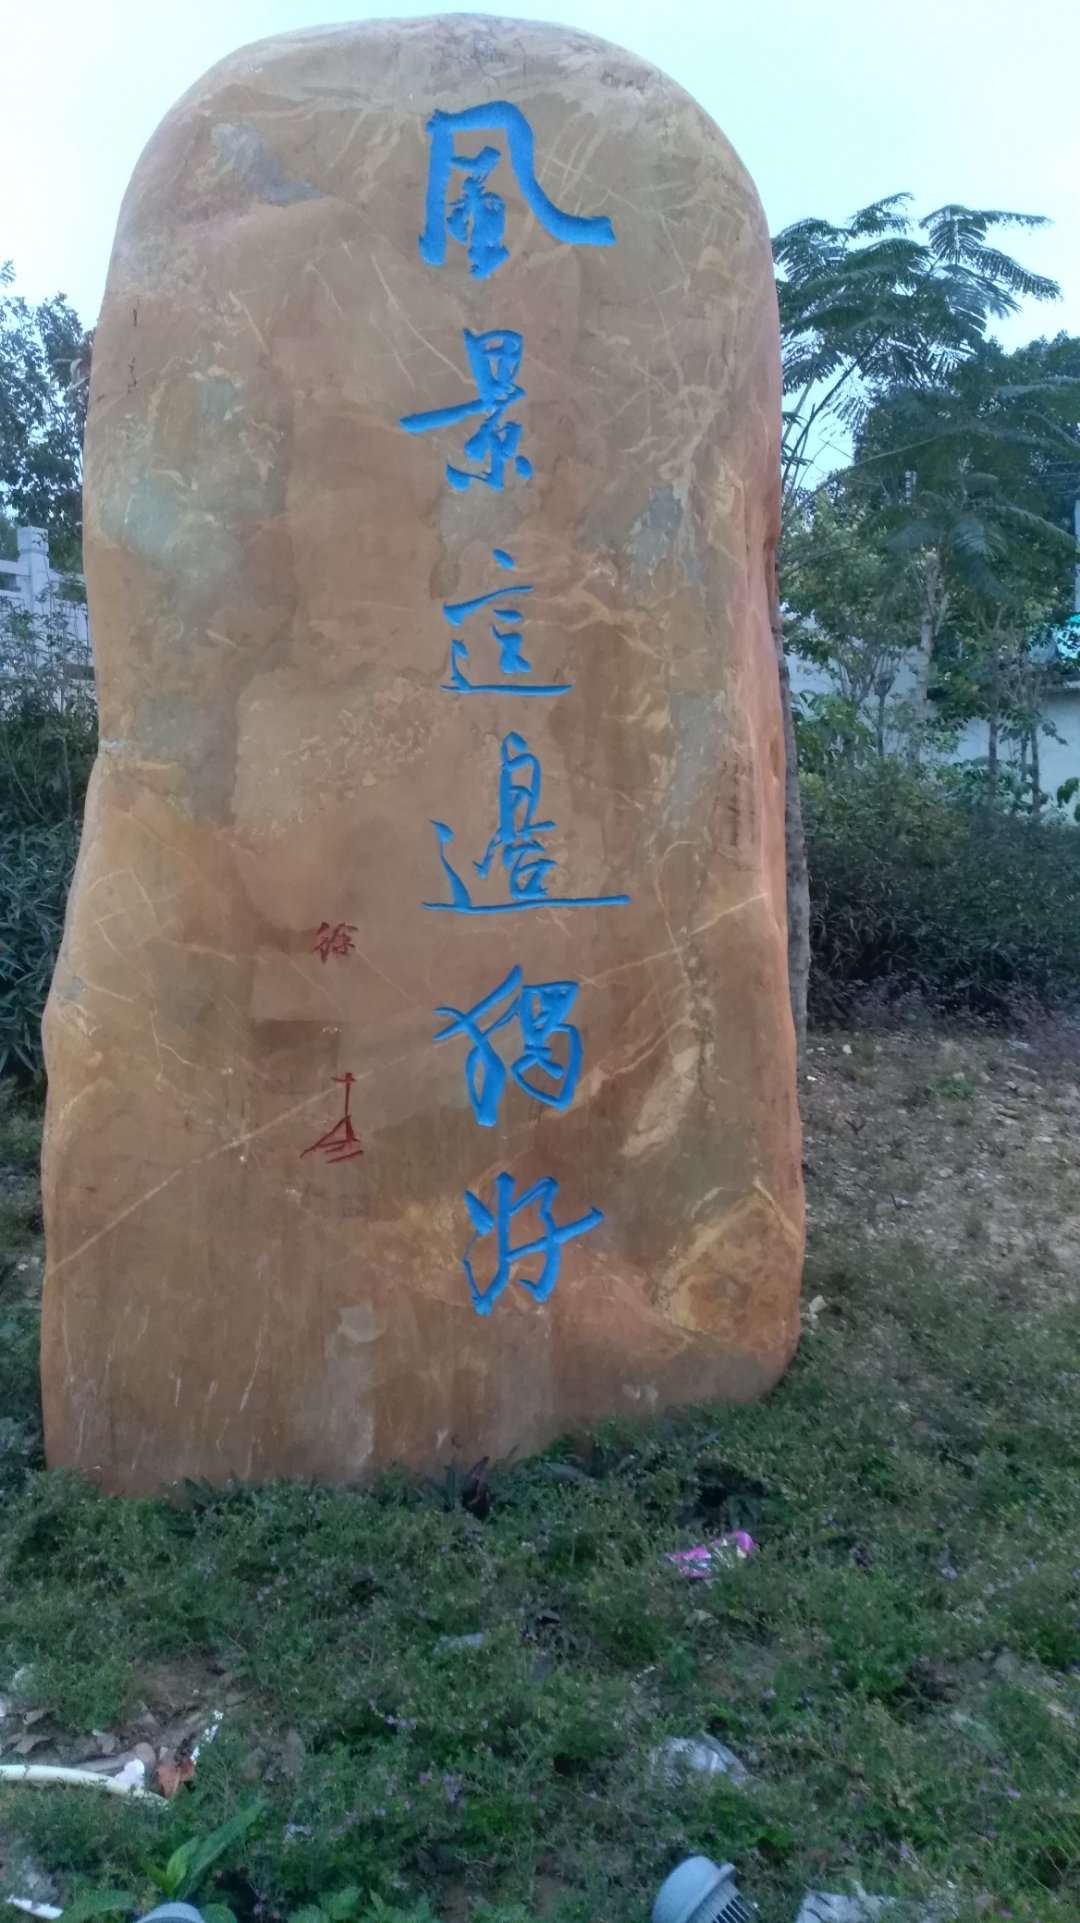 風景這邊獨好
徐